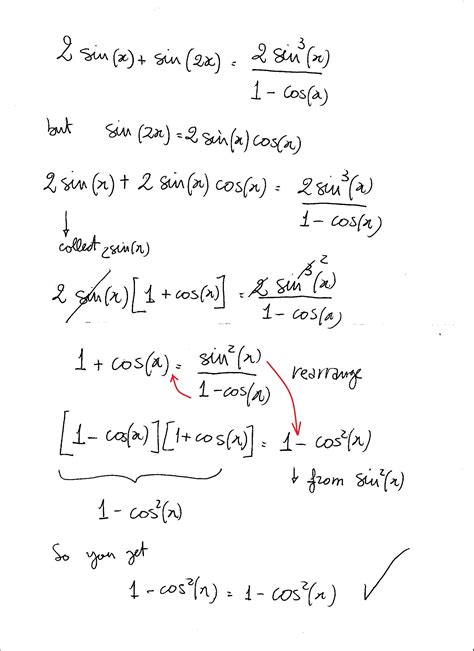 2 sin(x) + sin(2x) = 2 sin³(x) / 1 - cos(x)
but sin(2x) = 2 sin(x) cos(x)
2 sin(x) + 2 sin(x) cos(x) = 2 sin³(x) / 1 - cos(x)
↓
collect 2 sin(x)
2 sin(x) [1 + cos(x)] = 2 sin³ ² (x) / 1 - cos(x)
1 + cos(x) = sin²(x) / 1 - cos(x) rearrange
[1 - cos(x)][1 + cos(x)] = 1 - cos²(x)
↓ from sin²(x)
1 - cos²(x)
So you get
1 - cos²(x) = 1 - cos²(x) ✓